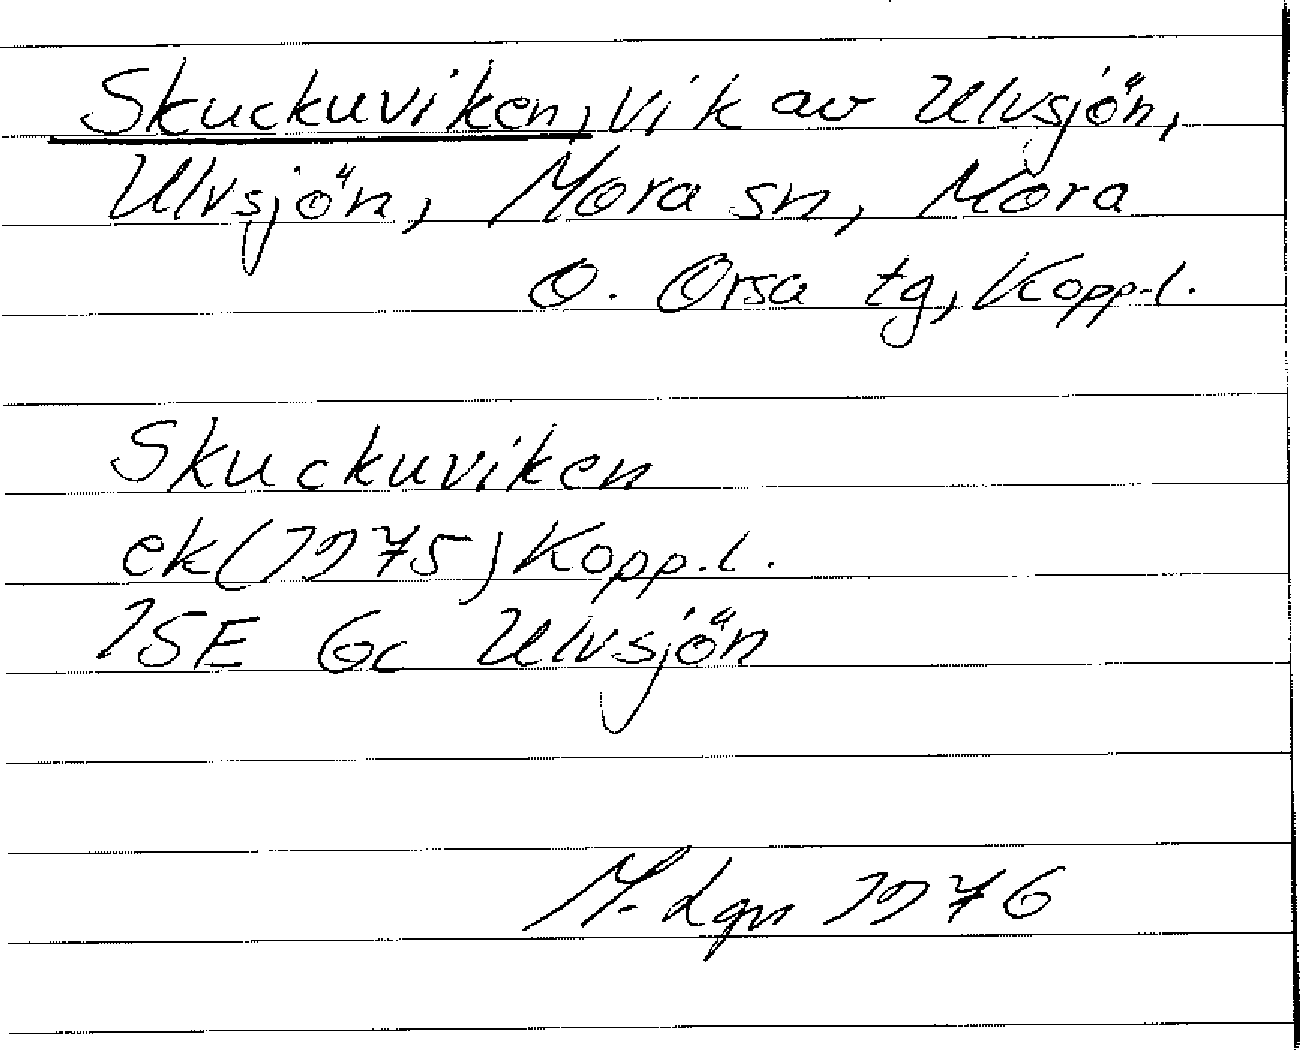 Skuckuviken, vik av Ulvsjön,
Ulvsjön, Mora sn, Mora
o. Orsa tg, Kopp.l.
Skuckuviken
ek (1975) Kopp.l.
15E Gc Ulvsjön
M. Lgn 1976